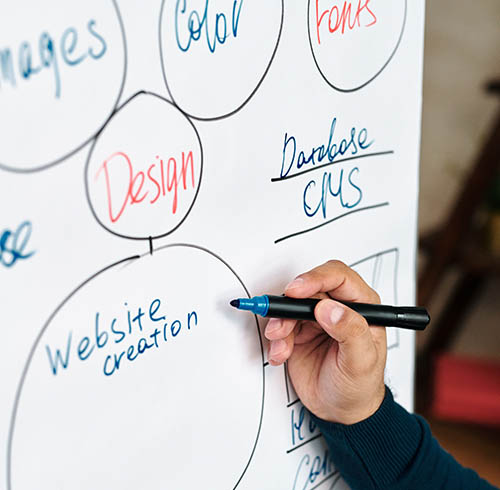 Images
Color
Fonts
Design
Database
CMS
Website
creation